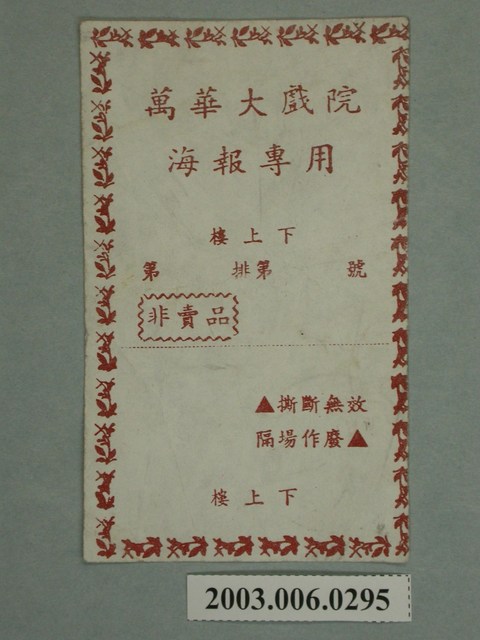 萬華大戲院
海報專用
樓上下
第 排第 號
非賣品
▲撕斷無效
隔場作廢▲
樓上下
2003.006.0295